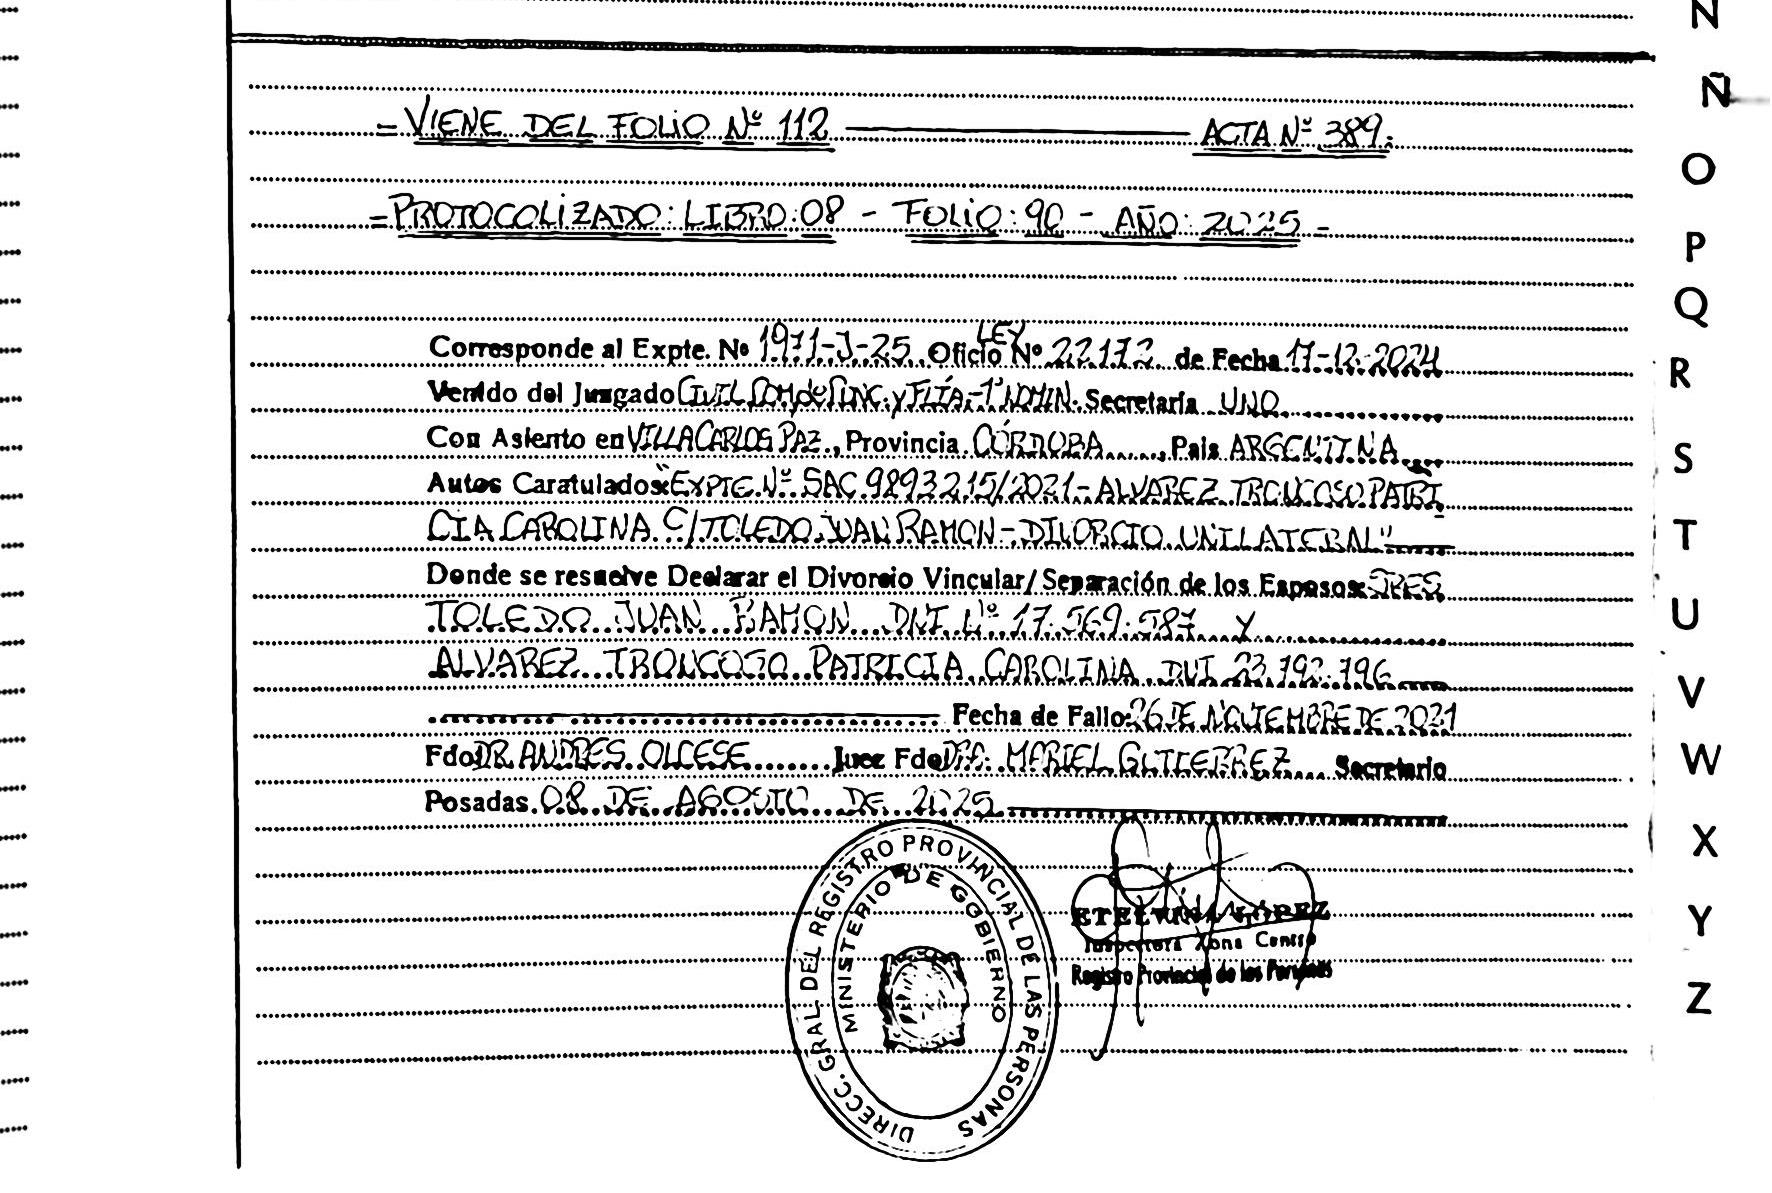 N
Ñ
O
P
Q
R
S
T
U
V
W
X
Y
Z
= VIENE DEL FOLIO Nº 112 ACTA Nº 389.
= PROTOCOLIZADO: LIBRO: 08 - FOLIO: 90 - AÑO: 2025 -
Corresponde al Expte. Nº 1971-J-25 Oficio LEY Nº 22.172 de Fecha 17-12-2024
Venido del Juzgado CIVIL COM, de CONC. y FLÍA.-1ª NOMIN. Secretaría UNO
Con Asiento en VILLA CARLOS PAZ, Provincia CÓRDOBA, País ARGENTINA
Autos Caratulados: "EXPTE. Nº SAC 9893215/2021 - ALVAREZ TRONCOSO PATRI
CIA CAROLINA C/ TOLEDO JUAN RAMON - DIVORCIO UNILATERAL"
Donde se resuelve Declarar el Divorcio Vincular/ Separación de los Esposos: SRES
TOLEDO JUAN RAMON DNI Nº 17.569.587 Y
ALVAREZ TRONCOSO PATRICIA CAROLINA DNI 23.192.196
Fecha de Fallo: 26 DE NOVIEMBRE DE 2021
Fdo DR. ANDRES OLCESE Juez Fdo DRA. MARIEL GUTIERREZ Secretario
Posadas 08 DE AGOSTO DE 2025
DIRECC. GRAL. DEL REGISTRO PROVINCIAL DE LAS PERSONAS
MINISTERIO DE GOBIERNO
ETELVINA LOPEZ
Inspectora Zona Centro
Registro Provincial de las Personas